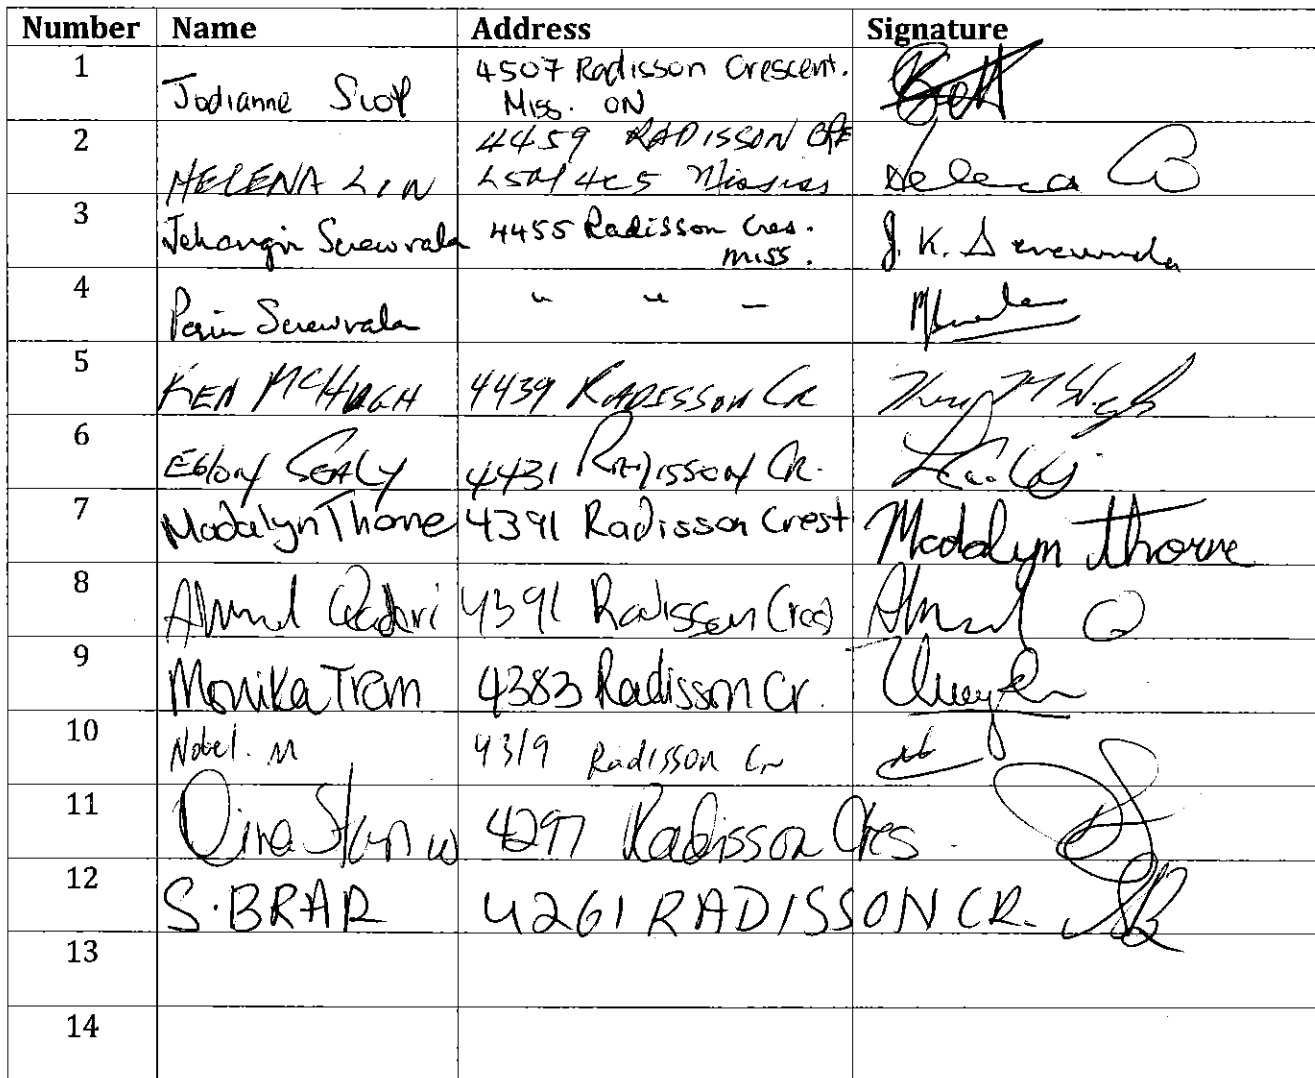 Number Name Address Signature
1 Jodianne 4507 Radisson Crescent.
Miss. ON
2 4459 RADISSON
HELENA LIN Helena
3 Jehangir Screwvala 4455 Radisson Cres. J. K.
Miss.
4 Perin Screwvala " " –
5 KEN MCHUGH 4439 RADISSON CR
6 SEALY 4431 RADISSON CR.
7 Madalyn Thorne 4391 Radisson Crest Madalyn Thorne
8 Ahmed Qadri 4391 Radisson Cres Ahmed Q
9 Monika Tran 4383 Radisson Cr.
10 Nobel. M 4319 Radisson Cr
11 4297 Radisson Cres.
12 S. BRAR 4261 RADISSON CR. SB
13
14